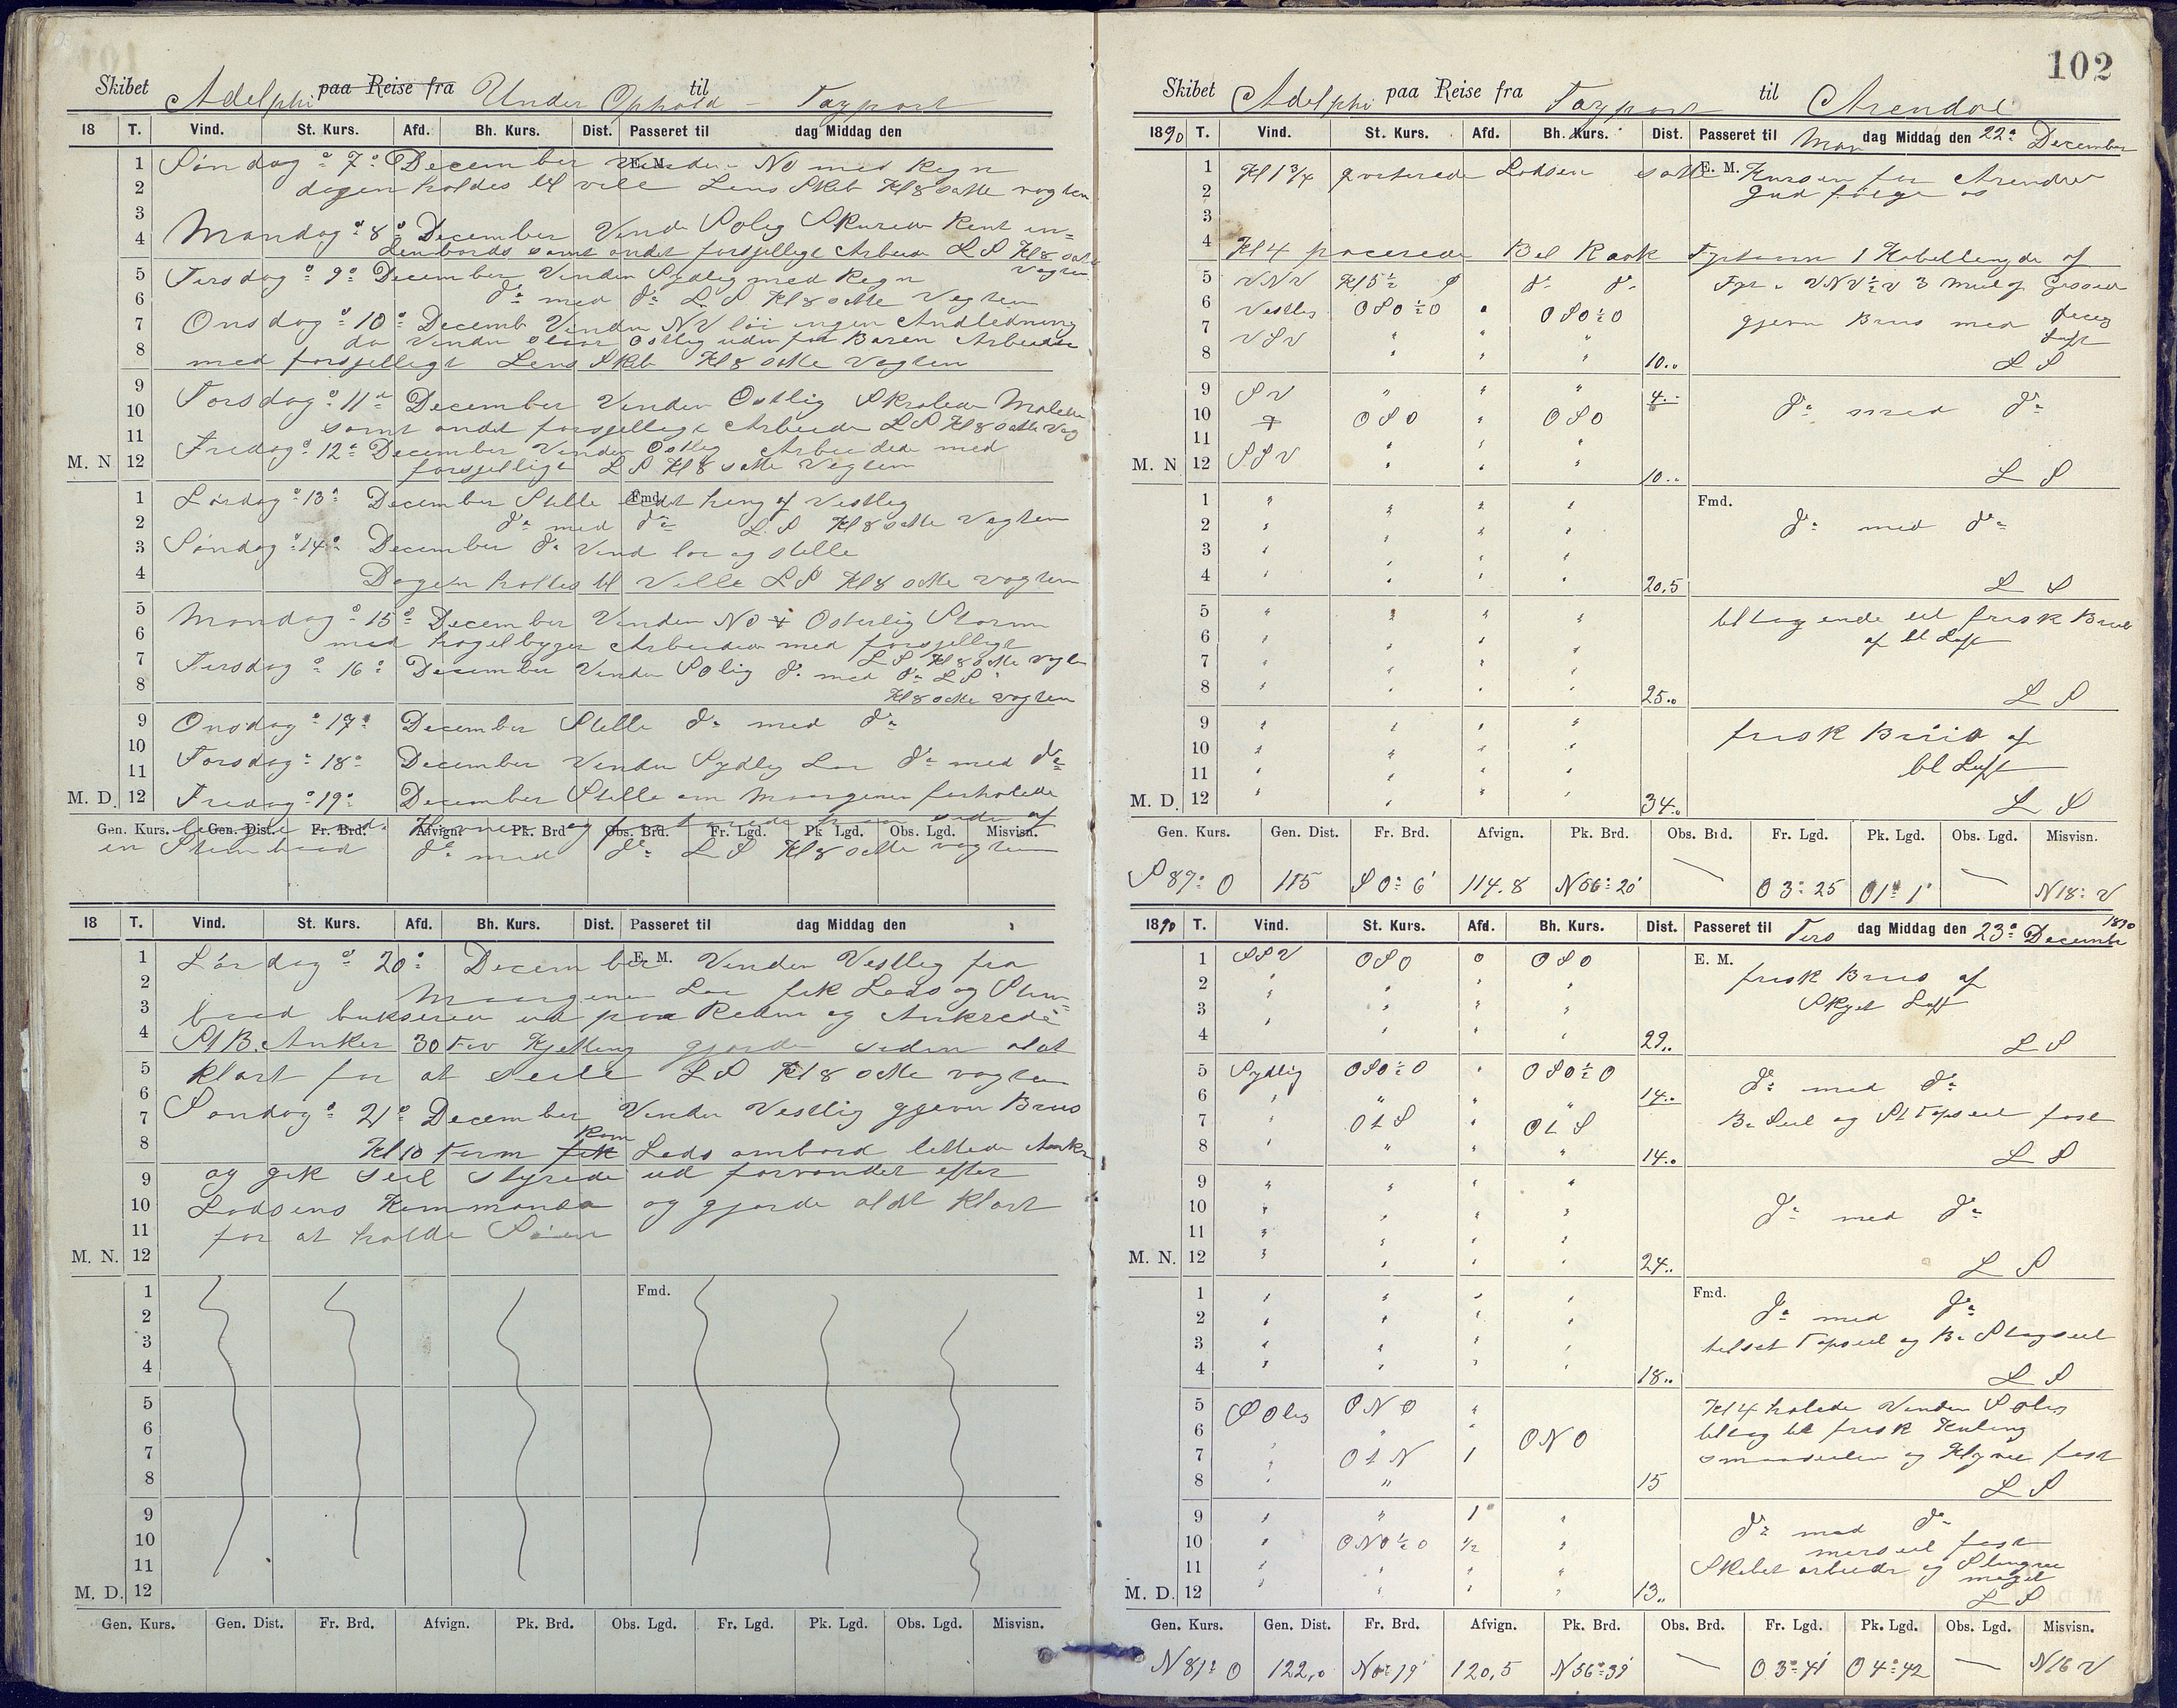 Skibet Adelphi paa Reise fra Under Ophold til Tayport
18 T. Vind. St. Kurs. Afd. Bh. Kurs. Dist. Passeret til dag Middag den
E. M.
1 Søndag d 7de December Vinden NO med Regn
2 dagen holdes til vile Lens Skib Kl 8 satte vagten
3
4 Mandag d 8de December Vinden Solig Skurede Rent in=
denbords samt andet forsjelligt Arbeide L S Kl 8 satte vagten
5 Tirsdag d 9de December Vinden Sydlig med Regn
6 do med do L S Kl 8 satte Vagten
7 Onsdag d 10de Decemb Vinden NV løi ingen Andledning
8 da Vinden staar Ostlig uden for Baren Arbeidede
med forsjelligt Lens Skib Kl 8 satte Vagten
9 Torsdag d 11te December Vinden Ostlig Skrabede Malede
10 samt andet forsjelligt Arbeide L S Kl 8 satte Vag
11 Fredag d 12te December Vinden Ostlig Arbeidede med
M. N 12 forsjelligt L S Kl 8 satte Vagten
Fmd.
1 Lørdag d 13de December Stille heng af Vestlig
2 do med do L. S Kl 8 satte Vagten
3 Søndag d 14de December do Vind lor og stille
4 Dagen holtes til Ville L S Kl 8 satte vagten
5 Mandag d 15de December Vinden NO Osterlig Storm
6 med hagelbyger Arbeidede med forsjelligt
L S Kl 8 satte vagten
7 Tirsdag d 16de December Vinden Solig do med do L S
8 Kl 8 satte vagten
9 Onsdag d 17de December Stille do med do
10 Torsdag d 18de December Vinden Sydlig Lor do med do
11
M. D. 12 Fredag d 19de December Stille om Morgenen forhalede
Gen. Kurs. Gen. Dist. Fr. Brd. Afvign. Pk. Brd. Obs. Brd. Fr. Lgd. Pk Lgd. Obs. Lgd. Misvisn.
en Stimbaad do med do L S Kl 8 satte vagten
18 T. Vind. St. Kurs. Afd. Bh. Kurs. Dist. Passeret til dag Middag den
E. M.
1 Lørdag d 20de December Vinden Vestlig fra
2 Morgenen Lor fik Lods og Stim=
3 baad bukserede ud paa Reden og Ankrede
4 St B. Anker 30 Fav Kjetting gjorde siden alt
5 klart for at seile L S Kl 8 satte vagten
6
7 Søndag d 21de December Vinden Vestlig gjevn Bris
8 Kl 10 Form fik kom Lods ombord lettede Anker
9 og gik Seil styrede ud farvandet efter
10 Lodsens Kommando og gjorde aldt klart
11 for at holde Søen
M. N. 12
Fmd.
1
2
3
4
5
6
7
8
9
10
11
M. D. 12
Gen. Kurs. Gen. Dist. Fr. Brd. Afvign. Pk. Brd. Obs. Lgd. Fr. Lgd. Pk. Lgd. Obs. Lgd. Misvisn.
102
Skibet Adelphi paa Reise fra Tayport til Arendal
1890 T. Vind. St. Kurs. Afd. Bh. Kurs. Dist. Passeret til Man dag Middag den 22de December
E. M.
1 Kl 1 3/4 kviterede Lodsen satte Kursen for Arendal
2 Gud følge os
3
4 Kl 4 paserede Bel Rock Fyrtaarn 1 Kabellengde af
5 VNV Kl 5 1/2 do do Fyr i VNV 1/2 V 3 Miil
6 Vestlig OSO 1/2 O " OSO 1/2 O gjevn Bris med
7 VSV " " " Luft
8 " " " 10.. L S
9 SV " " " 4..
10 OSO " OSO do med do
11 " " "
M. N 12 SSV " " " 10.. L S
Fmd.
1 " " " "
2 " " " " do med do
3 " " " "
4 " " " " 20.5 L S
5 " " " " tiltagende til frisk Bris
6 " " " " af bl Luft
7 " " " "
8 " " " " 25.. L S
9 " " " " frisk Bris af
10 " " " "
11 " " " " bl Luft
M. D. 12 " " " " 34.. L S
Gen. Kurs. Gen. Dist. Fr. Brd. Afvign. Pk. Brd. Obs. Brd. Fr. Lgd. Pk. Lgd. Obs. Lgd. Misvisn.
S 87° O 115 S 0° 6' 114.8 N 56° 20' — O 3° 25 O 1° 1' — N 18° V
1890 T. Vind. St. Kurs. Afd. Bh. Kurs. Dist. Passeret til Tirs dag Middag den 23de December 1890
E. M.
1 SSV OSO 0 OSO
2 " " " " frisk Bris af
3 " " " " Skyet Luft
4 " " " " 29.. L S
5 Sydlig OSO 1/2 O " OSO 1/2 O do med do
6 " " " " 14..
7 " O t S " O t S Br Seil og St Topseil fast
8 " " " " 14.. L S
9 " " " "
10 " " " " do med do
11 " " " "
M. N. 12 " " " " 24.. L S
Fmd.
1 " " " "
2 " " " " do med do
3 " " " " tilsat Topseil og Br Stagseil
4 " " " " 18.. L S
5 S Olig ONO " Kl 4 halede Vinden Solig
6 " " " ONO tiltog til frisk Kuling
7 " O t N 1 smaaseilen og Klyver fast
8 " " 15 L S
9 " " 1 " do med do
10 " ONO 1/2 O 1/2 " merseil fast
11 " " " " Skibet arbeider og Slingrer meget
M. D. 12 " " " " 13.. L S
Gen. Kurs. Gen. Dist. Fr. Brd. Afvign. Pk. Brd. Obs. Brd. Fr. Lgd. Pk. Lgd. Obs. Lgd. Misvisn.
N 81° O 122,0 N 0° 19' 120,5 N 56° 39' — O 3° 41' O 4° 42 — N 16 V